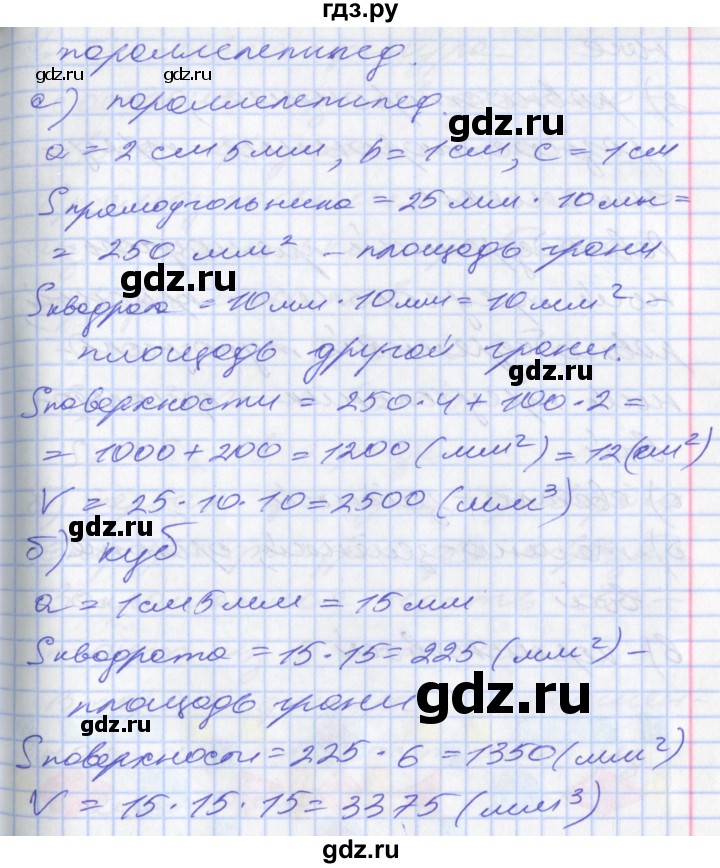 гдз.ру
параллелепипед.
gdz.ru
gdz.ru
а) параллелепипед.
gdz.ru
a = 2 см 5 мм, b = 1 см, c = 1 см
Sпрямоугольника = 25 мм · 10 мм =
= 250 мм² – площадь грани
gdz.ru
Sквадрата = 10 мм · 10 мм = 10 мм² –
площадь другой грани.
gdz.ru
Sповерхности = 250 · 4 + 100 · 2 =
= 1000 + 200 = 1200 (мм²) = 12 (см²)
V = 25 · 10 · 10 = 2500 (мм³)
gdz.ru
б) куб
a = 1 см 5 мм = 15 мм
Sквадрата = 15 · 15 = 225 (мм²) –
площадь грани
gdz.ru
gdz.ru
Sповерхности = 225 · 6 = 1350 (мм²)
V = 15 · 15 · 15 = 3375 (мм³)
gdz.ru